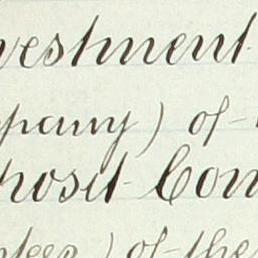 vestment
pany) of
posit Com
ntees) of the